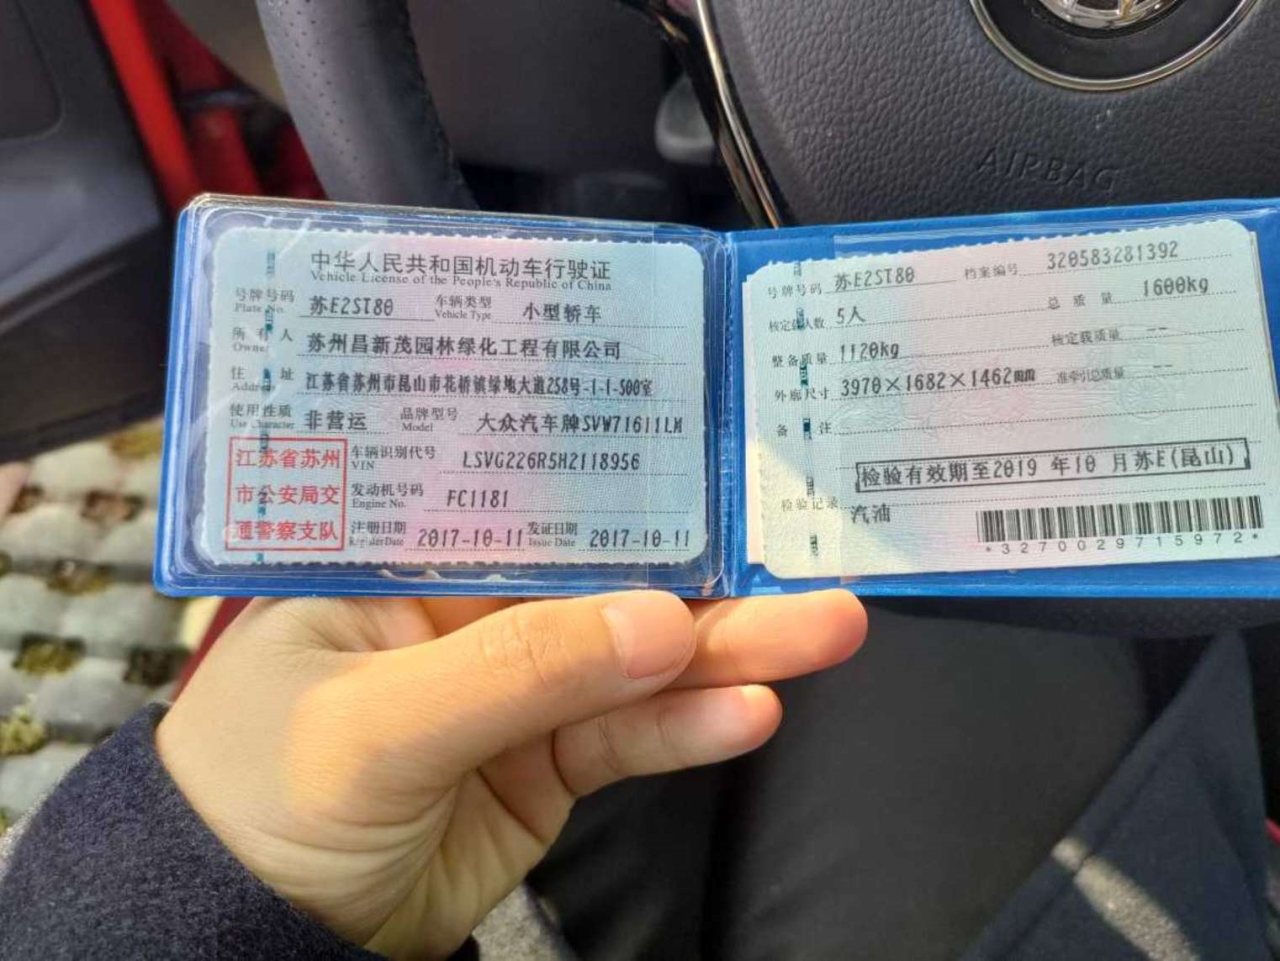 AIRBAG
中华人民共和国机动车行驶证
Vehicle License of the People's Republic of China
号牌号码 Plate No. 苏E2ST80 车辆类型 Vehicle Type 小型轿车
所有人 Owner 苏州昌新茂园林绿化工程有限公司
住址 Address 江苏省苏州市昆山市花桥镇绿地大道258号-1-1-500室
使用性质 Use Character 非营运 品牌型号 Model 大众汽车牌SVW71611LM
江苏省苏州
市公安局交
通警察支队
车辆识别代号 VIN LSVG226R5H2118956
发动机号码 Engine No. FC1181
注册日期 Register Date 2017-10-11 发证日期 Issue Date 2017-10-11
号牌号码 苏E2ST80 档案编号 320583281392
核定载人数 5人 总质量 1600kg
整备质量 1120kg 核定载质量 --
外廓尺寸 3970×1682×1462mm 准牵引总质量 --
备注
检验有效期至2019 年10 月苏E(昆山)
检验记录 汽油
*3270029715972*